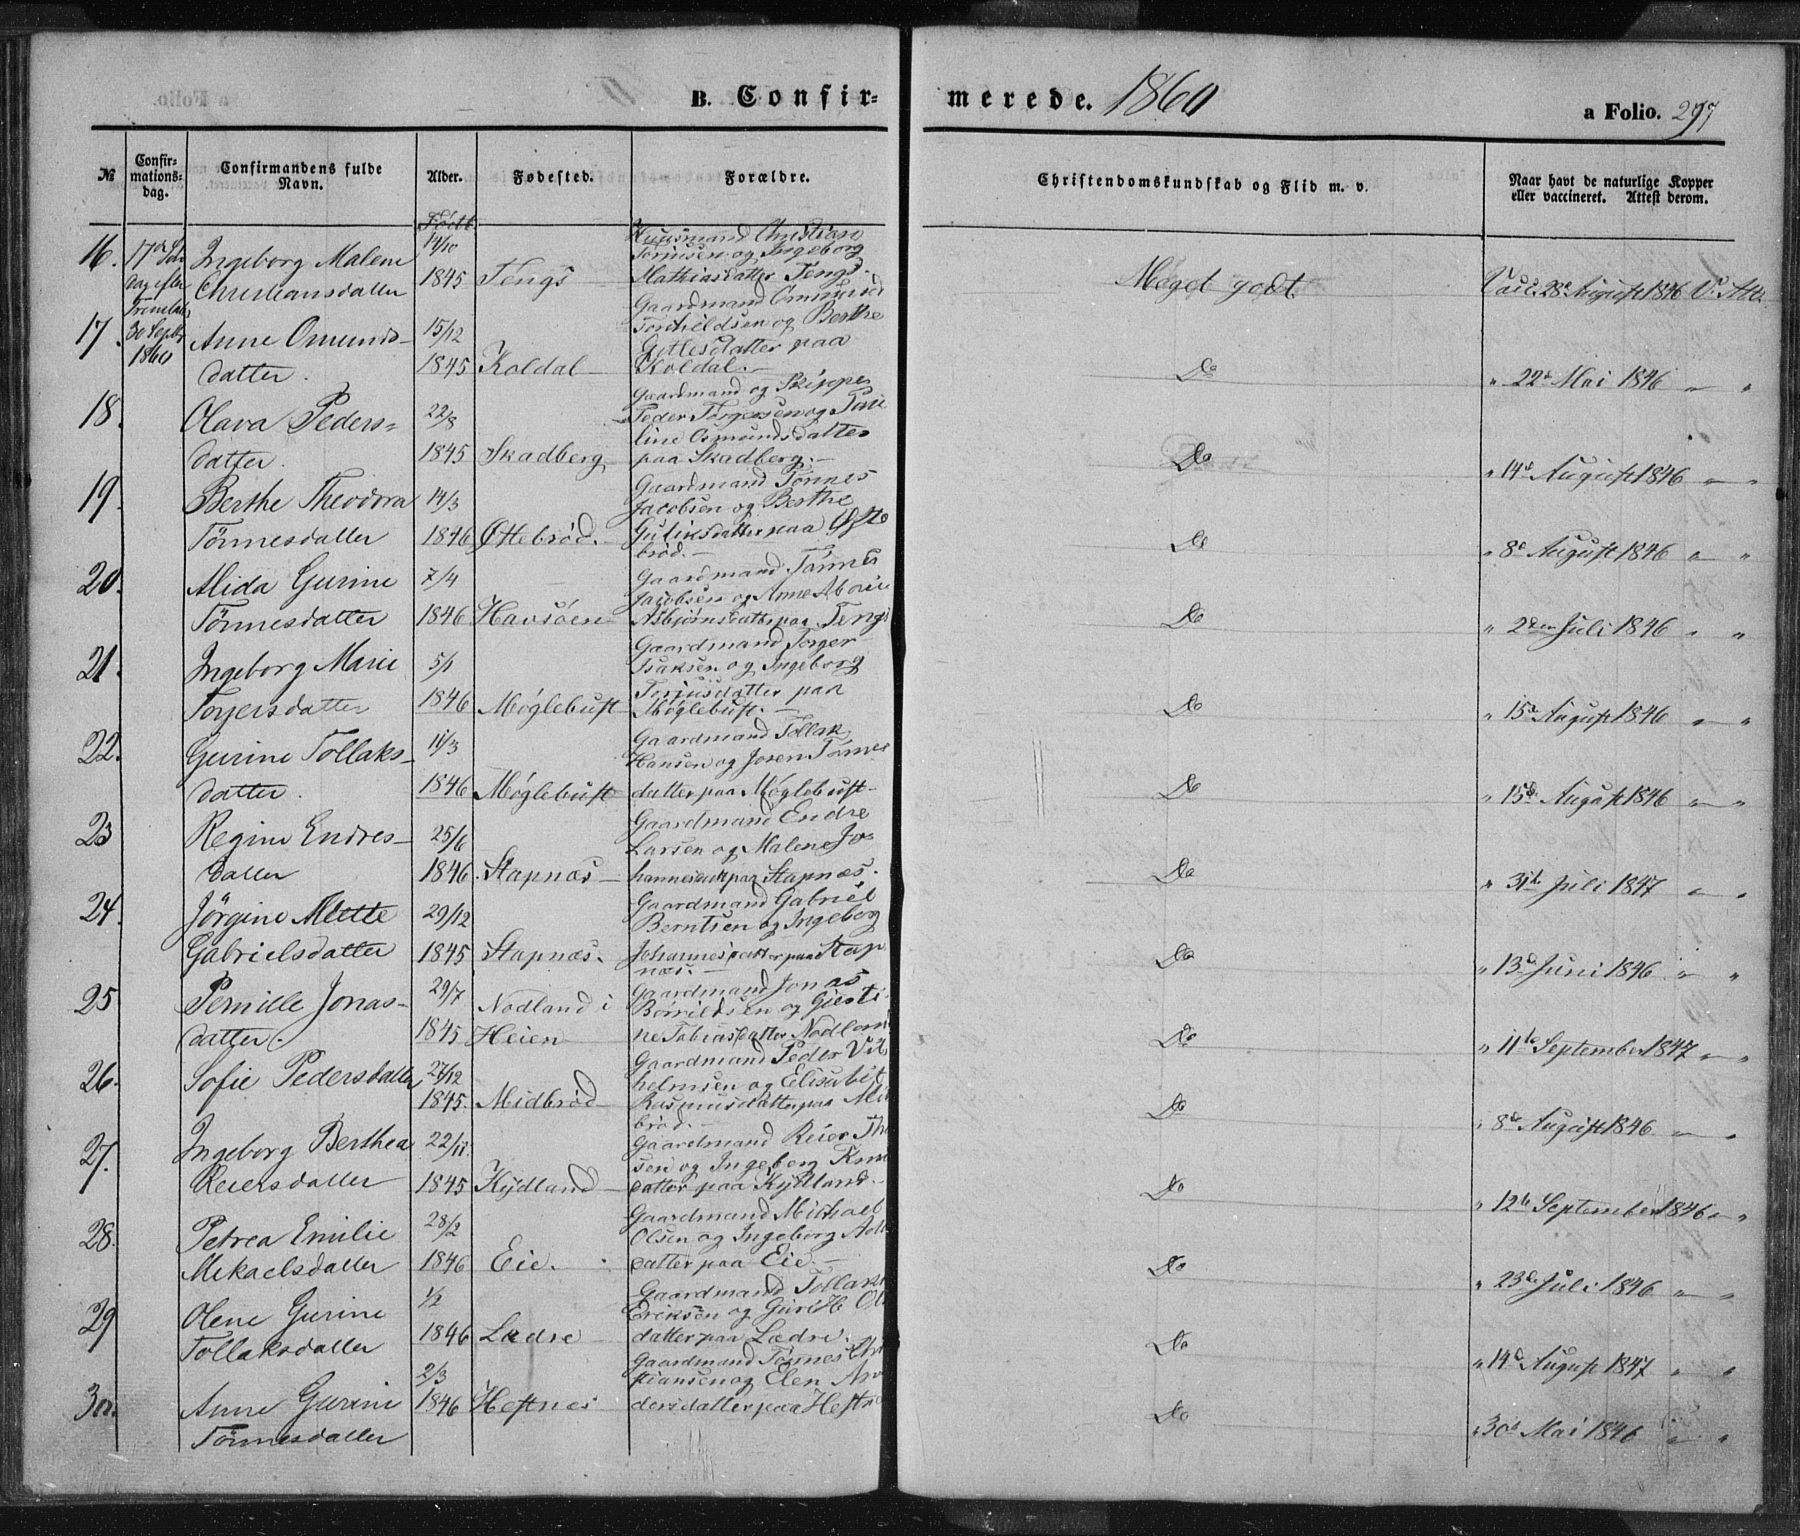 B. Confir-
merede. 1860
a Folio. 297
№
Confir-
mations-
dag.
Confirmandens fulde
Navn.
Alder.
Fødested.
Forældre.
Christendomskundskab og Flid m. v.
Naar havt de naturlige Kopper
eller vaccineret. Attest derom.
Født
16. 17de Søn
dag efter
Trinitatis
30 Septbr
1860
Ingeborg Malene
Christiansdatter
14/10
1845
Tengs
Huusmand Christian
Tørrisen og Ingeborg
Mathiasdatter Tengs.
Meget godt
Vacc. 28d August 1846 V. Att.
17.
Anne Omunds-
datter.
15/12
1845
Koldal
Gaardmand Ommund
Torkildsen og Berthe
Gitlesdatter paa
Koldal.
Do
" 22d Mai 1846 " "
18.
Olava Peders-
datter.
22/8
1845
Skadberg
Gaardmand og Skipper
Peder Torgersen og Tone
line Osmundsdatter
paa Skadberg.
Do
" 14d August 1846 " "
19.
Berthe Theodora
Tönnesdatter
14/3
1846
Øttebrød.
Gaardmand Tönnes
Jacobsen og Berthe
Guliksdatter paa Øtte
brød.
Do
" 8d August 1846 " "
20.
Alida Gurine
Tönnesdatter
7/4
1846
Havsøen
Gaardmand Tönnes
Jacobsen og Anne Marie
Asbjørnsdatter paa Tengs
Do
" 2den Juli 1846 " "
21.
Ingeborg Marie
Torgersdatter
5/1
1846
Møglebust
Gaardmand Torger
Isaksen og Ingeborg
Torjusdatter paa
Møglebust.
Do
" 15d August 1846 " "
22.
Gurine Tollaks-
datter.
11/3
1846
Møglebust
Gaardmand Tollak
Hansen og Joren Tönnes
datter paa Møglebust
Do
" 15d August 1846 " "
23
Regine Endres-
datter
25/6
1846.
Stapnæs
Gaardmand Endre
Larsen og Malene Jo
hannesdatt paa Stapnæs.
Do
" 31te Juli 1847 " "
24.
Jörgine Mette
Gabrielsdatter
29/12
1845
Stapnæs.
Gaardmand Gabriel
Berntsen og Ingeborg
Johannesdatter paa Stap
næs.
Do
" 13d Juni 1846 " "
25
Pernille Jonas-
datter.
29/7
1845
Nodland i
Heien
Gaardmand Jonas
Børrildsen og Giesti
ne Tobiasdatter Nodland
Do
" 11te September 1847 " "
26.
Sofie Pedersdatter
27/12
1845.
Midbrød
Gaardmand Peder Vil
helmsen og Elisabet
Rasmusdatter paa Mid
brød.
Do
" 8d August 1846 " "
27.
Ingeborg Berthea
Reiersdatter
22/11
1845
Kydland
Gaardmand Reier
sen og Ingeborg
datter paa Kydland.
Do
" 12te September 1846 " "
28.
Petrea Emilie
Mikaelsdatter
28/2
1846
Eie.
Gaardmand Michael
Olsen og Ingeborg
datter paa Eie.
Do
" 23d Juli 1846 " "
29
Olene Gurine
Tollaksdatter
1/2
1846
Lædre
Gaardmand Tollak
Eriksen og Guri H
datter paa Lædre.
Do
" 14d August 1847 " "
30.
Anne Gurine
Tönnesdatter
2/3
1846
Hestnes
Gaardmand Tönnes Chri
stiansen og Elen An
dersdatter paa Hestnes
Do
" 30d Mai 1846 " "